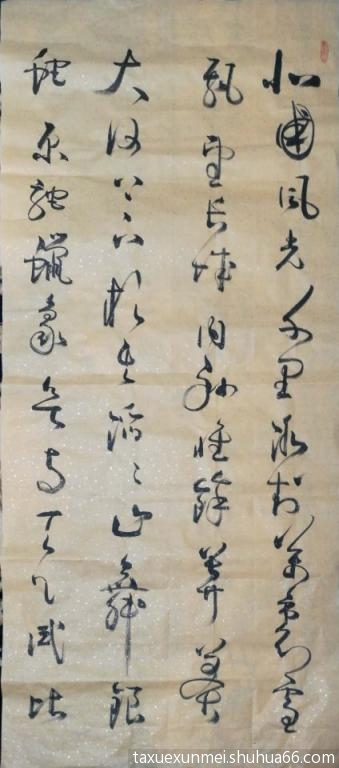 北國风光千里冰封萬里雪
飘望长城内外惟餘莽莽
大河上下顿失滔々山舞銀
蛇原馳蠟象欲与天公試比
taxuexunmei.shuhua66.com